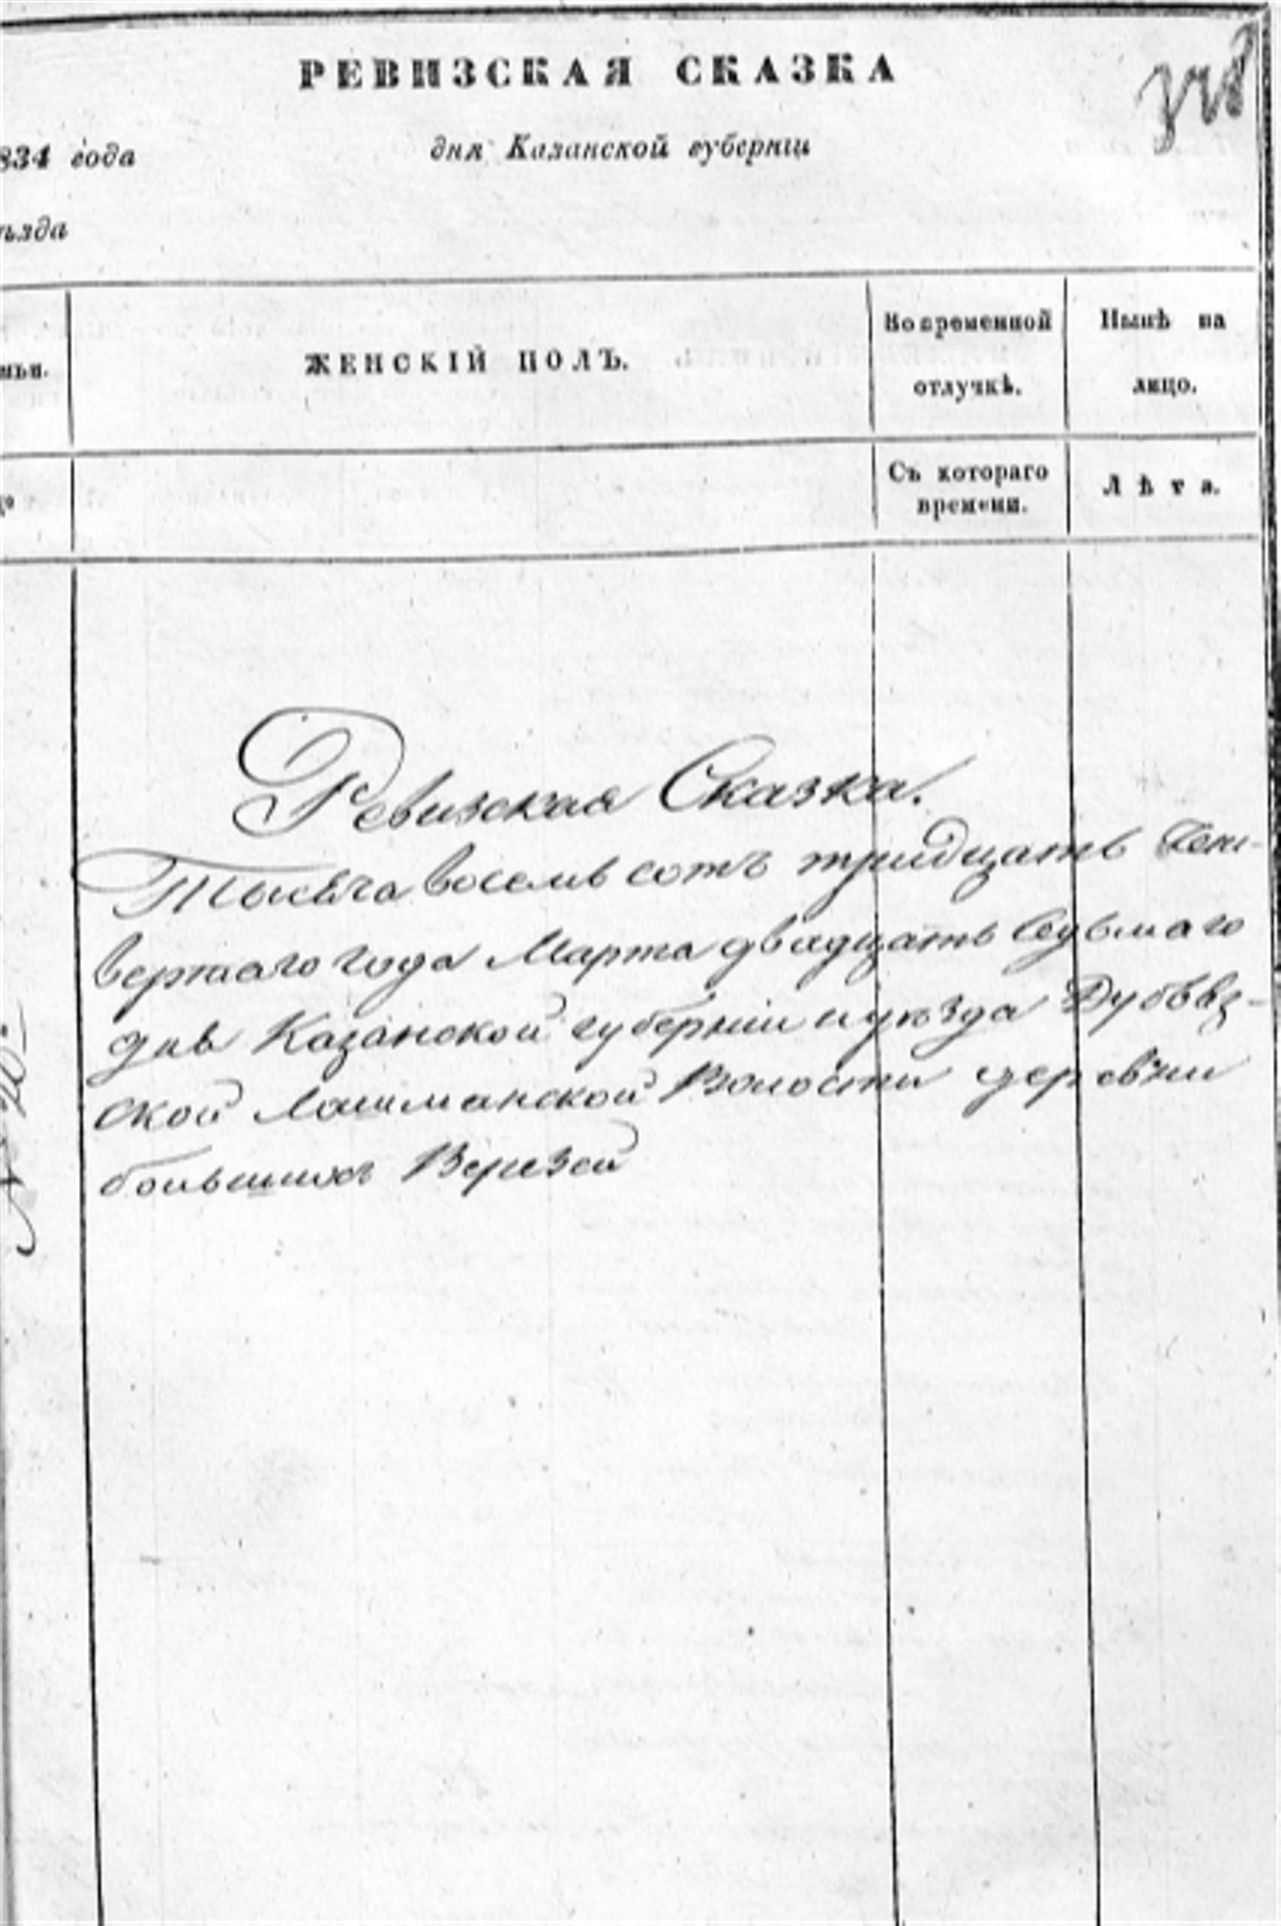 РЕВИЗСКАЯ СКАЗКА
834 года дня Казанской губерніи
ѣзда
мьи. ЖЕНСКІЙ ПОЛЪ. Во временной отлучкѣ. Нынѣ на лицо.
Съ котораго времени. Лѣта.
Ревизская Сказка.
Тысяча восемь сотъ тридцать Чет-
вертаго года Марта двадцать Седьмаго
дня Казанской губерніи и уѣзда
ской Лашманской Волости деревни
большихъ Верезей